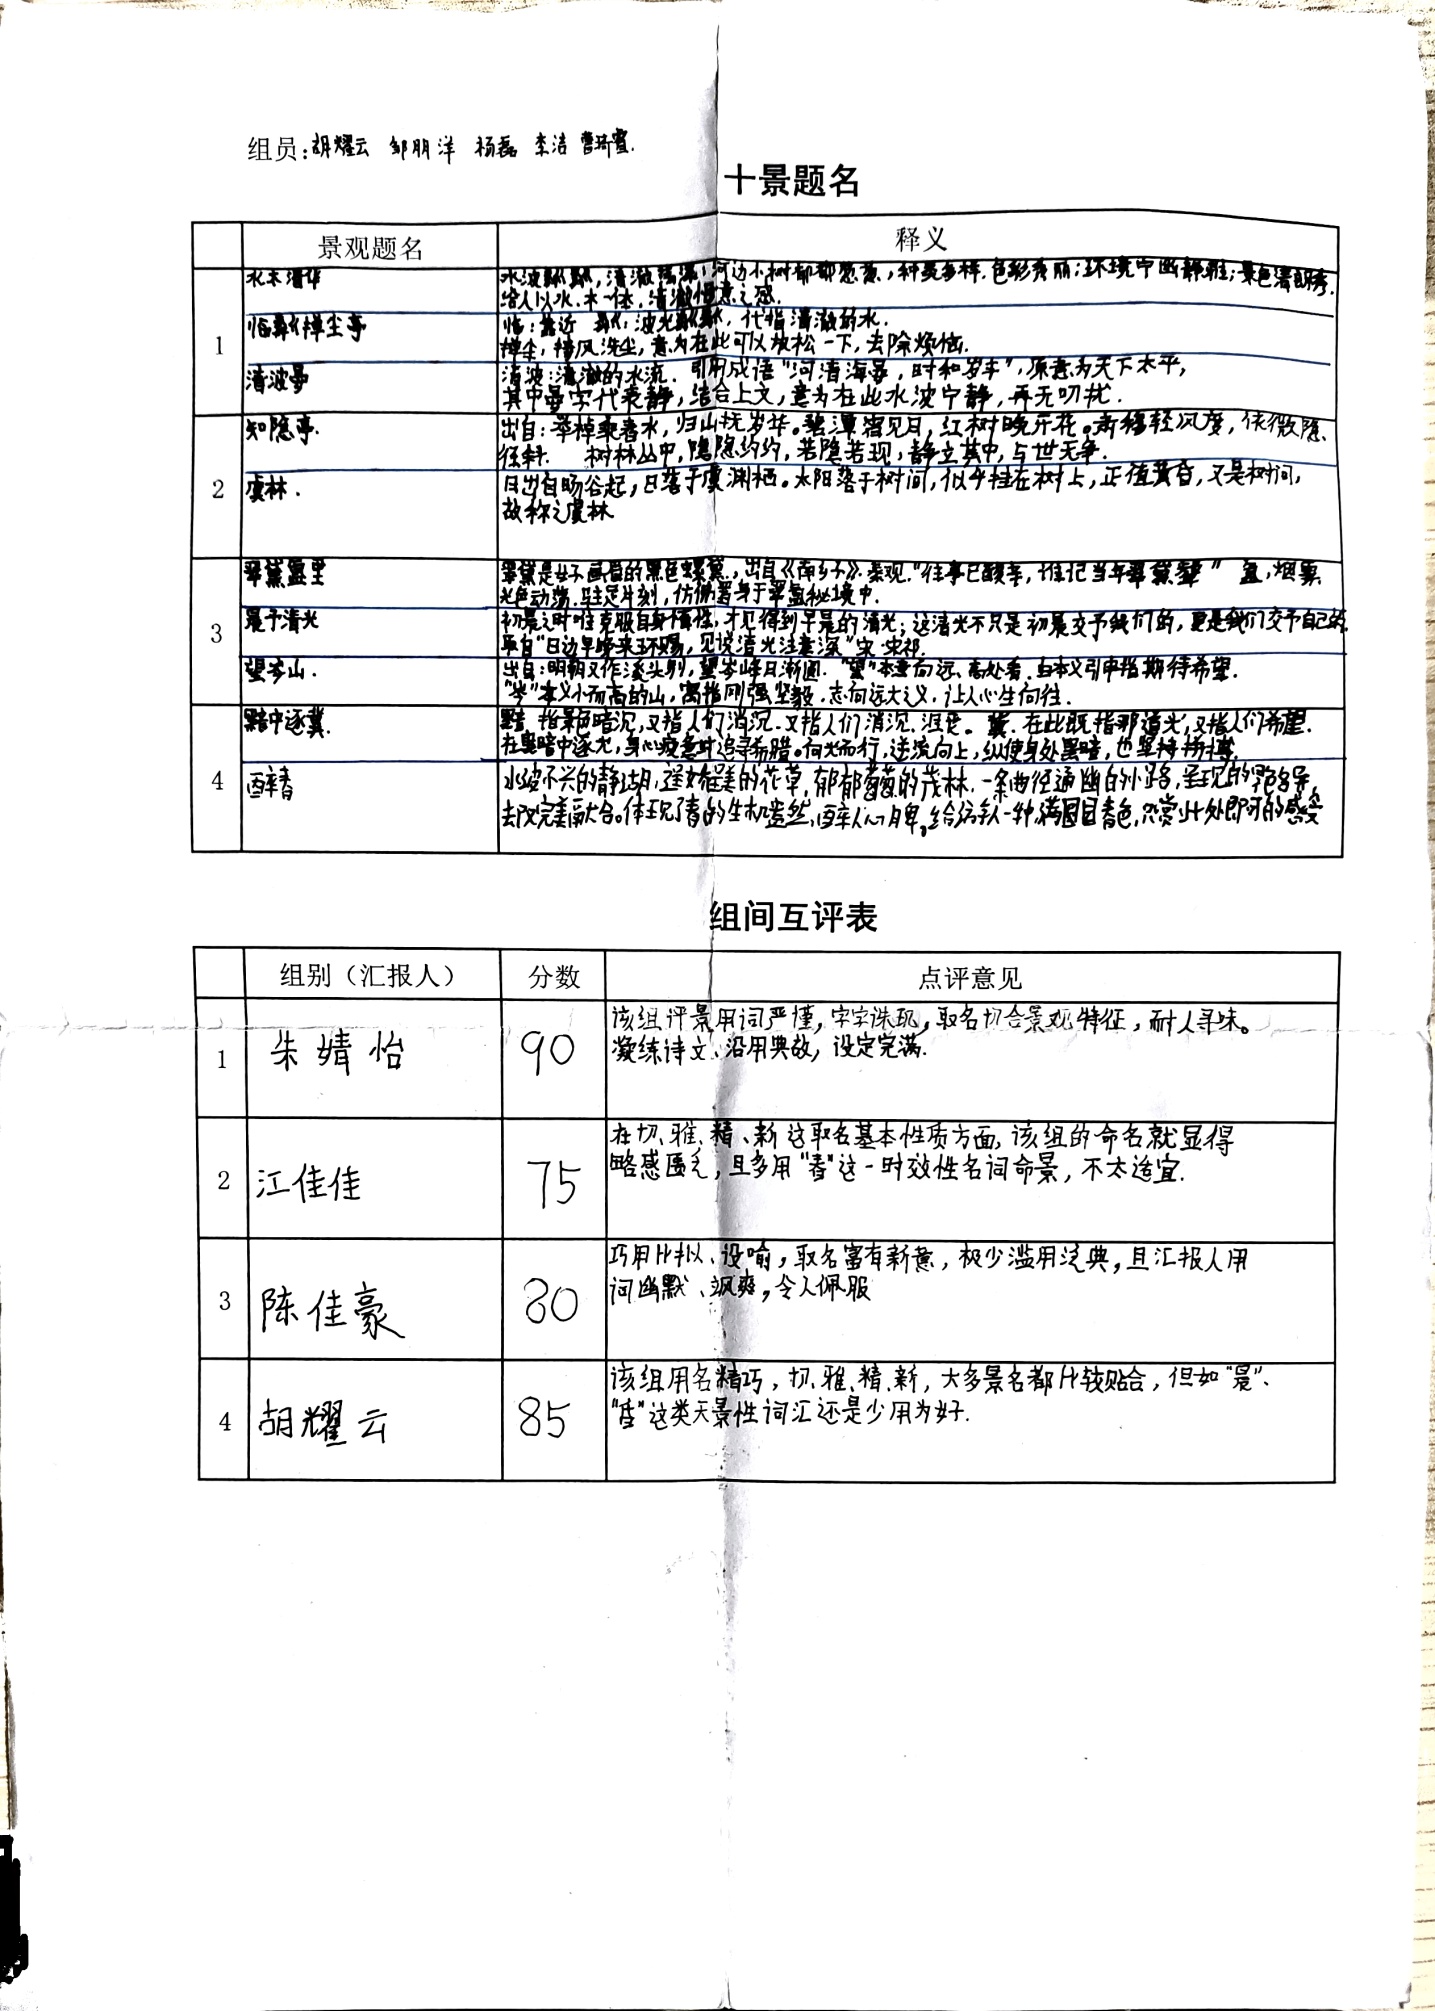 组员:胡耀云 邹朋洋 杨磊 李洁
十景题名
景观题名 释义
1
水木清华
水波粼粼,清澈 河边小树郁郁葱葱,种类多样.色彩秀丽;环境宁幽静雅;景色清朗秀.
给人以水.木一体,清澈惬意之感.
临粼掸尘亭
临:靠近 粼:波光粼粼,代指清澈的水.
掸尘:掸风洗尘,意为在此可以放松一下,去除烦恼.
清波晏
清波:清澈的水流.引用成语“河清海晏,时和岁丰”,原意为天下太平,
其中晏字代表静,结合上文,意为在此水波宁静,再无叨扰.
2
知隐亭.
出自:举棹乘春水,归山抚岁华。碧潭宿见月,红树晚开花。 轻风度,依微隐
径斜. 树林丛中,隐隐约约,若隐若现,静立其中,与世无争.
虞林.
日出自旸谷起,日落于虞渊栖.太阳落于树间,似乎挂在树上,正值黄昏,又是树间,
故称之虞林
3
翠黛氲里
翠黛是女子画眉的黑色螺黛,出自《南乡子》.景观.“往事已酸辛,谁记当年翠黛颦” 氲,烟雾
光色动荡.驻足片刻,仿佛置身于翠氲秘境中.
晨予清光
初晨之时唯克服自身惰性,才见得到早晨的清光;这清光不只是初晨交予我们的,更是我们交予自己的
取自“日边早晚来环赐,见说清光注意深”宋·宋祁.
望岑山.
出自:明朝又作溪头别,望岑峰月渐圆.“望”本意向远、高处看.由本义引申指期待希望.
“岑”本义小而高的山,寓指刚强坚毅.志向远大之义,让人心生向往.
4
黯中逐冀.
黯.指景色暗沉,又指人们消沉.又指人们消沉.沮丧. 冀.在此既指那道光,又指人们希望.
在黑暗中逐光,身心疲惫时追寻希腊。向光而行,逆流向上,纵使身处黑暗,也坚持拼搏.
醉春
水波不兴的静湖,逶迤摧美的花草,郁郁葡葡的茂林.一条曲径通幽的小路,呈现的
去又完美融合。体现了春的生机盎然,醉人心脾。给游人一种,满园目春色,只赏此处即可的感受
组间互评表
组别(汇报人) 分数 点评意见
1 朱婧怡 90
该组评景用词严谨,字字珠玑,取名切合景观特征,耐人寻味。
凝练诗文、沿用典故,设定完满.
2 江佳佳 75
在切、雅、精、新这取名基本性质方面,该组的命名就显得
略感匮乏,且多用“春”这一时效性名词命景,不太适宜.
3 陈佳豪 80
巧用比拟、设喻,取名富有新意,极少滥用泛典,且汇报人用
词幽默、飒爽,令人佩服
4 胡耀云 85
该组用名精巧,切、雅、精、新,大多景名都比较贴合,但如“晨”、
这类天景性词汇还是少用为好.